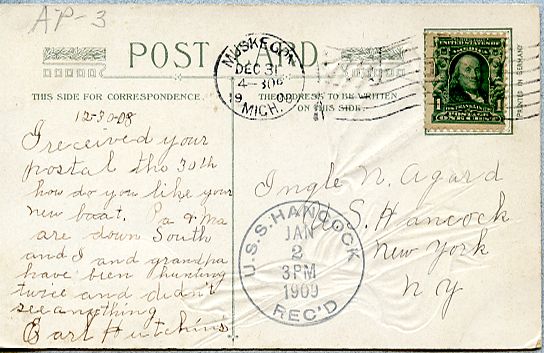 AP-3
POST CARD.
MUSKEGON
DEC 31
4-30P
1908
MICH.
THIS SIDE FOR CORRESPONDENCE.
THE ADDRESS TO BE WRITTEN
ON THIS SIDE.
UNITED STATES OF AMERICA
1 1
FRANKLIN
POSTAGE
ONE CENT
PRINTED IN GERMANY
12-30-08
I received your
postal the 30th
how do you like your
new boat. Pa & Ma
are down South
and I and grandpa
have bien hunting
twice and didn't
see anything
Earl Hutchins
Ingle N. Agard
S. Hancock
New York
N Y
U.S.S. HANCOCK
JAN
2
3PM
1909
REC'D